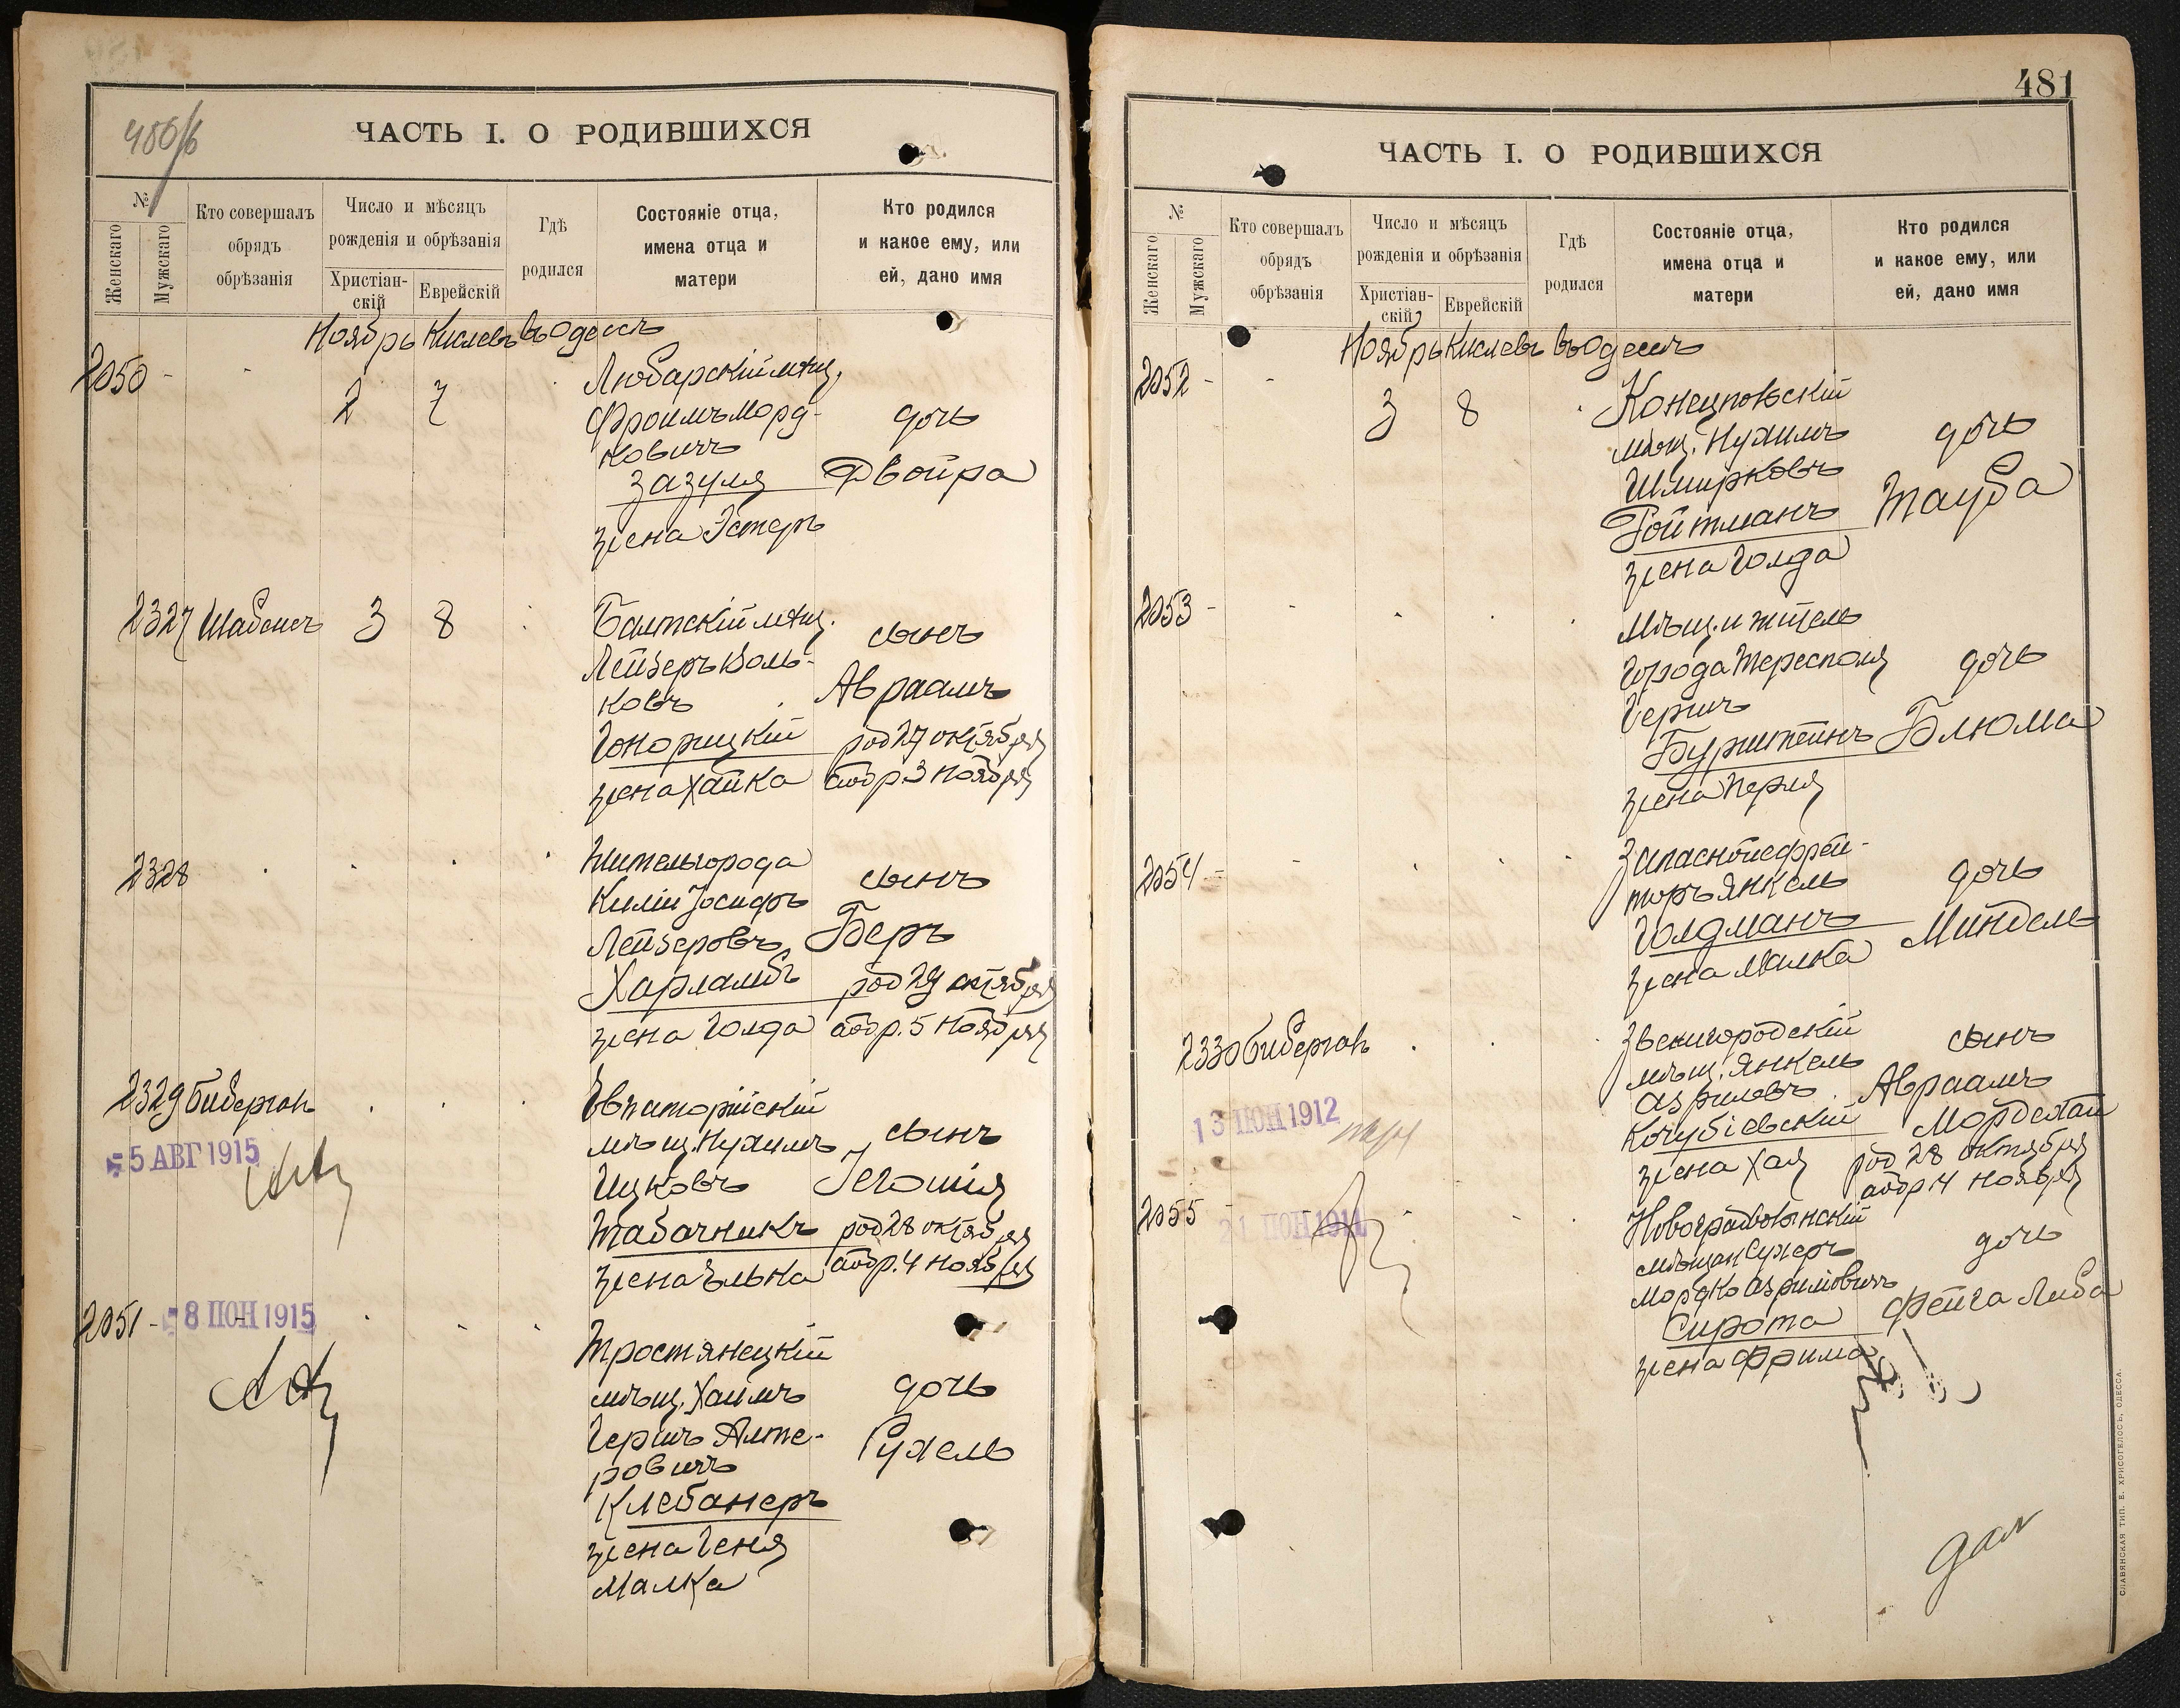 480/б
ЧАСТЬ I. О РОДИВШИХСЯ
№
Женскаго
Мужскаго
Кто совершалъ
обрядъ
обрѣзанія
Число и мѣсяцъ
рожденія и обрѣзанія
Христіан-
скій
Еврейскій
Гдѣ
родился
Состояніе отца,
имена отца и
матери
Кто родился
и какое ему, или
ей, дано имя
Ноябрь Кислевъ въ Одессѣ
2050 - - 2 7
Любарскій мѣщ.
Фроимъ Морд-
ковичъ
Зазуля
жена Эстеръ
дочь
Двойра
2327 Шабсисъ 3 8
Балтскій мѣщ.
Лейзеръ Воль-
ковъ
Гонорицкій
жена Хайка
сынъ
Авраамъ
род 27 октября
аобр. 3 ноября
2328
Житель города
Киліи Іосифъ
Лейзеровъ
Харламбъ
жена Голда
сынъ
Беръ
род 29 октября
аобр. 5 ноября
2329 Бибергалъ
5 АВГ 1915
Евпаторійскій
мѣщ. Нухимъ
Ицковъ
Табачникъ
жена Элька
сынъ
Іегошія
род 28 октября
аобр. 4 ноября
2051 -
8 ІЮН 1915
Тростянецкій
мѣщ. Хаимъ
Гершъ Алте-
ровичъ
Клебанеръ
жена Геня
Малка
дочь
Рухель
481
ЧАСТЬ I. О РОДИВШИХСЯ
№
Женскаго
Мужскаго
Кто совершалъ
обрядъ
обрѣзанія
Число и мѣсяцъ
рожденія и обрѣзанія
Христіан-
скій
Еврейскій
Гдѣ
родился
Состояніе отца,
имена отца и
матери
Кто родился
и какое ему, или
ей, дано имя
Ноябрь Кислевъ въ Одессѣ
2052 - - 3 8
Конецпольскій
мѣщ. Нухимъ
Шмирковъ
Ройтманъ
жена Голда
дочь
Тауба
2053 -
Мѣщ. и житель
города Тересполя
Гершъ
Бурштейнъ
жена Перля
дочь
Блюма
2054 -
Запасной ефрей-
торъ Янкель
Голдманъ
жена Малка
дочь
Миндель
2330 Бибергалъ
13 ІЮН 1912
Звенигородскій
мѣщ. Янкель
Азриловъ
Кочубіевскій
жена Хая
сынъ
Авраамъ
Мордехай
род 28 октября
аобр 4 ноября
2055 -
21 ІЮН 1911
Новоградволынскій
мѣщан Сухеръ
Мордко Азриловичъ
Сирота
жена Фрима
дочь
Фейга Либа
СЛАВЯНСКАЯ ТИП. Е. ХРИСОГЕЛОСЪ, ОДЕССА.